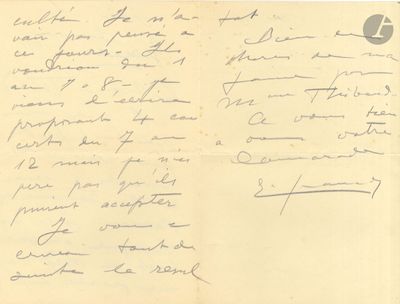 culté. Je n'a-
vais pas pensé à
ces jours. Ils
voudraient du 1
au 7 - 8 - je
viens d'écrire
proposant 4 con
certs du 7 au
12 mais je n'es
père pas qu'ils
puissent accepter
Je vous é
crirai tout de
suite le résul
tat
Bien des
choses de ma
femme pour
Mme Thibaud.
A vous bien
à vous votre
Camarade
E.